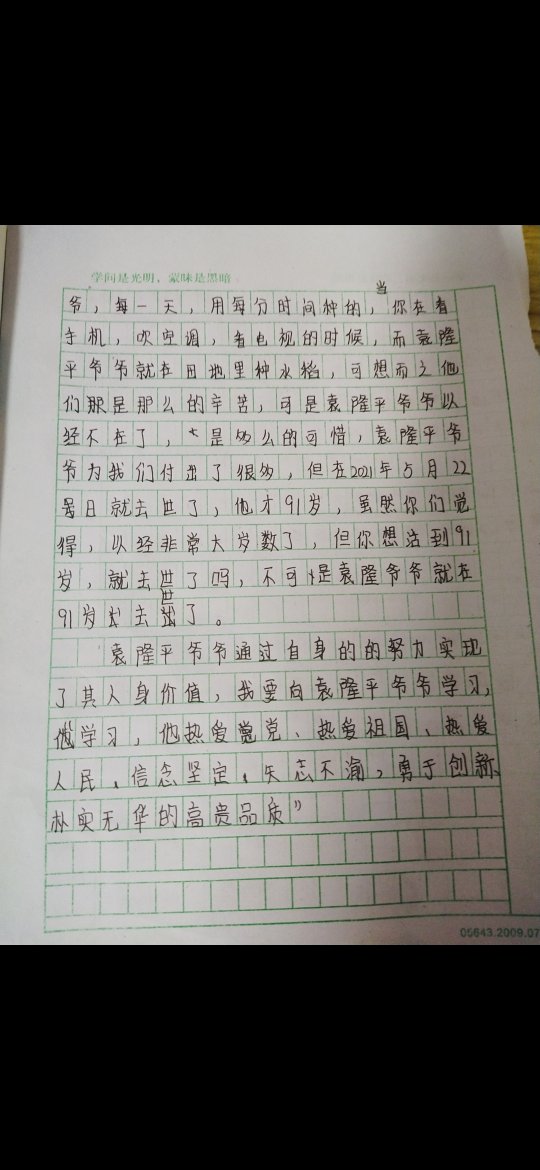 学问是光明，蒙昧是黑暗
当
爷，每一天，用每分时间种的，你在看
手机，吹空调，看电视的时候，而袁隆
平爷爷就在田地里种水稻，可想而之他
们那是那么的辛苦，可是袁隆平爷爷以
经不在了，是多么的可惜，袁隆平爷
爷为我们付出了很多，但在2021年5月22
日就去世了，他才91岁，虽然你们觉
得，以经非常大岁数了，但你想活到91
岁，就去世了吗，不可惜是袁隆爷爷就在
91岁去世了。
袁隆平爷爷通过自身的的努力实现
了其人身价值，我要向袁隆平爷爷学习，
学习，他热爱党、热爱祖国、热爱
人民、信念坚定、矢志不渝，勇于创新、
朴实无华的高贵品质”
05643.2009.07